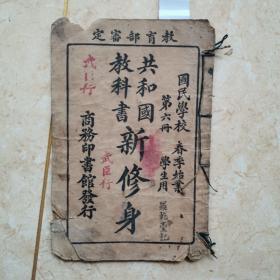 教育部審定
國民學校
春季始業
第六冊
學生用
共和國
教科書
新修身
商務印書館發行
武臣行